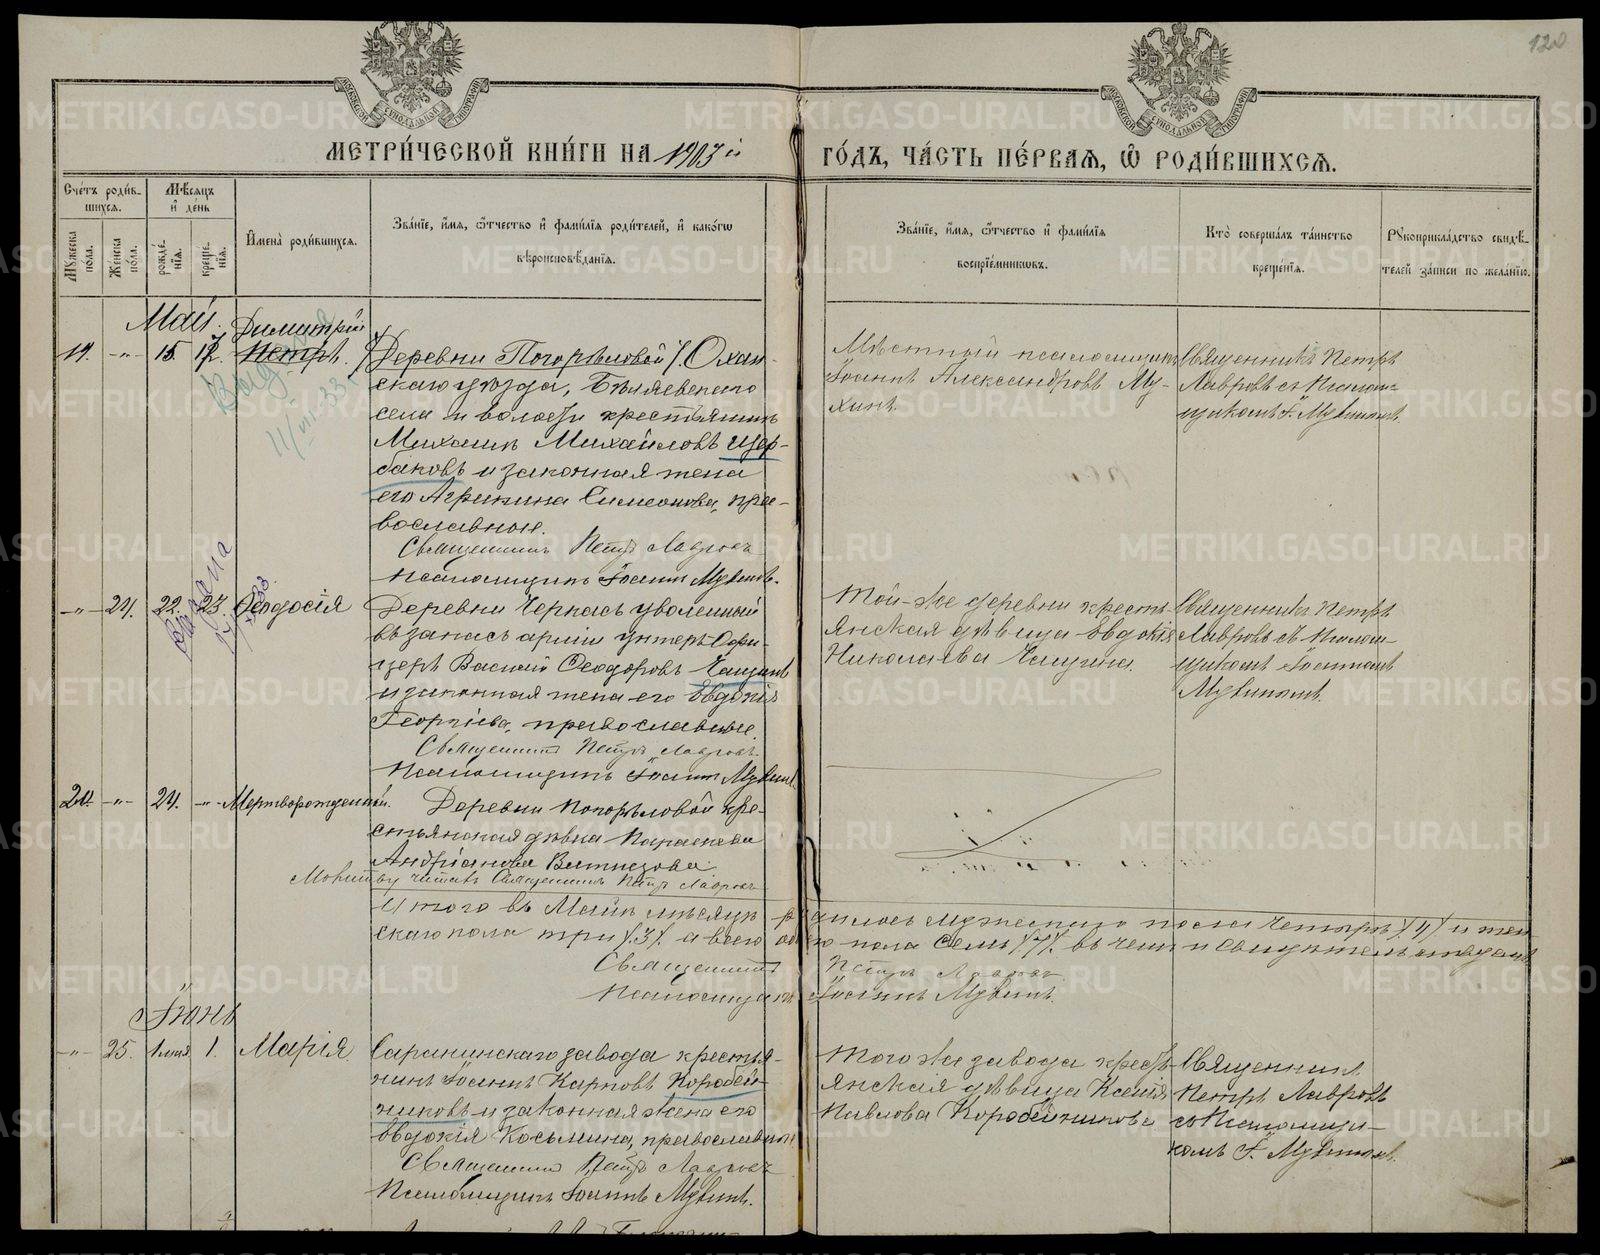 120
МОСКОВСКОЙ СѴНОДАЛЬНОЙ ТИПОГРАФІИ
МОСКОВСКОЙ СѴНОДАЛЬНОЙ ТИПОГРАФІИ
МЕТРИ́ЧЕСКОЙ КНИ́ГИ НА 1903 й ГО́ДЪ, ЧА́СТЬ ПЕ́РВАѦ, Ѡ҆ РОДИ́ВШИХСѦ.
Сче́тъ роди́в-
шихсѧ.
Мѣ́сѧцъ
и҆ де́нь
Мꙋ́жеска по́ла.
Же́нска по́ла.
рожде́-
нїѧ.
креще́-
нїѧ.
И҆мена̀ роди́вшихсѧ.
Зва́нїе, и҆́мѧ, ѻ҆́тчество и҆ фами́лїѧ роди́телей, и҆ како́гѡ
вѣроисповѣ́данїѧ.
Зва́нїе, и҆́мѧ, ѻ҆́тчество и҆ фами́лїѧ
воспрїе́мникѡвъ.
Кто̀ соверша́лъ та́инство
креще́нїѧ.
Рꙋкоприкла́дство свидѣ́-
телей за́писи по жела́нїю.
Май.
Димитрій
19. -„- 15. 17. Петръ.
Деревни Погорѣловой /. Охан-
скаго уѣзда, Бѣляевскаго
села и волости крестьянинъ
Михаилъ Михайловъ Щер-
баковъ и законная жена
его Агрипина Симеонова, пра-
вославные.
Священникъ Петръ Лавровъ
Псаломщикъ Іоаннъ Мухинъ.
Мѣстный псаломщикъ
Іоаннъ Александровъ Му-
хинъ.
Священникъ Петръ
Лавровъ съ Псалом-
щикомъ І. Мухинымъ.
Выдана
11/VIII-33
-„- 24. 22. 23. Ѳеодосія
Деревни Черкасъ уволенный
въ запасъ арміи унтеръ-Офи-
церъ Василій Ѳеодоровъ Чащинъ
и законная жена его Евдокія
Георгіева, православные.
Священникъ Петръ Лавровъ.
Псаломщикъ Іоаннъ Мухинъ.
Той-же деревни кресть-
янская дѣвица Евдокія
Николаева Чащина.
Священникъ Петръ
Лавровъ съ Псалом-
щикомъ Іоанномъ
Мухинымъ.
Выдана
20. -„- 24. -„- Мертворожденный.
Деревни Погорѣловой кре-
стьянская дѣвка Параскева
Андріанова
Молитву читалъ Священникъ Петръ Лавровъ
Итого въ Маѣ мѣсяцѣ родилось мужескаго пола четыре /4/ и жен-
скаго пола три /3/. а всего обоего пола семь /7/. въ чемъ и свидѣтельствуемъ
Священникъ Петръ Лавровъ
Псаломщикъ Іоаннъ Мухинъ.
Іюнь
-„- 25. 1. Марія
Саранинскаго завода крестья-
нинъ Іоаннъ Карповъ Коробей-
никовъ и законная жена его
Евдокія Косьмина, православные.
Священникъ Петръ Лавровъ
Псаломщикъ Іоаннъ Мухинъ.
Того же завода кресть-
янская дѣвица Ксенія
Павлова Коробейникова
Священникъ
Петръ Лавровъ
съ Псаломщи-
комъ І. Мухинымъ.
METRIKI.GASO-URAL.RU